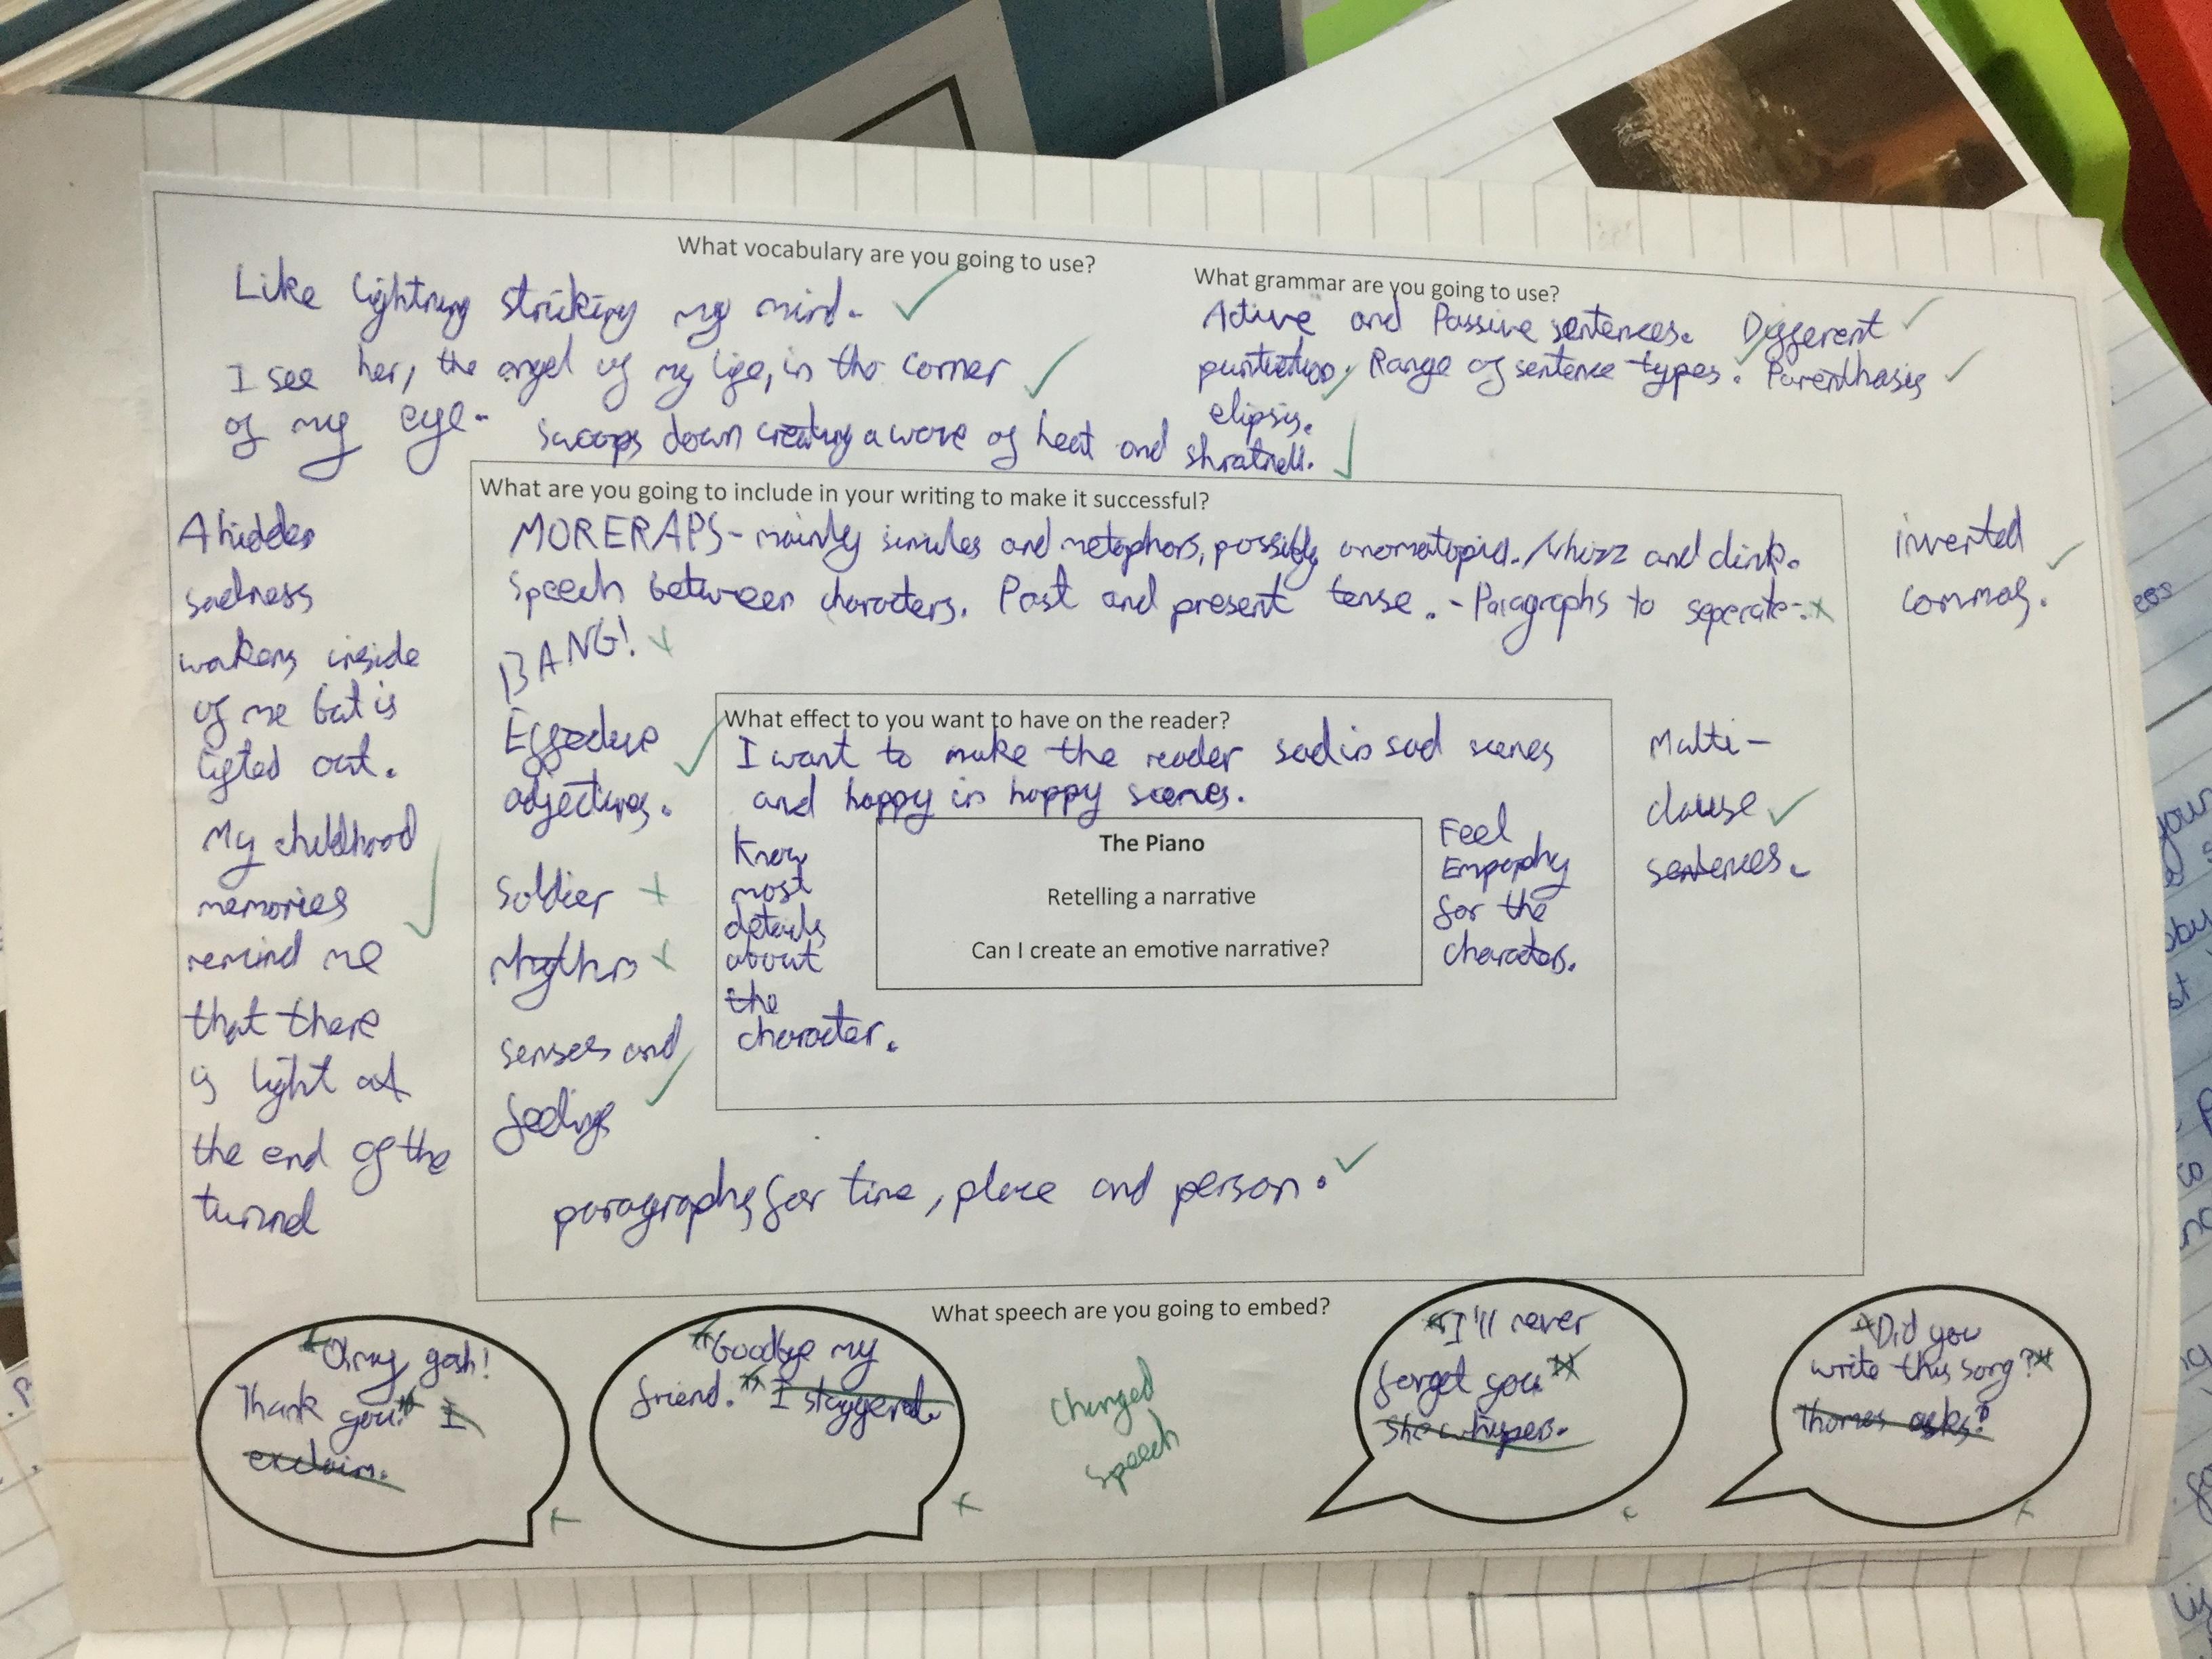 What vocabulary are you going to use?
Like lightning striking my mind.
I see her, the angel of my life, in the corner
of my eye.
swoops down creating a wave of heat and shratnell.
What grammar are you going to use?
Active and Passive sentences. Different
Range of sentence types. Parenthasis
elipsis.
inverted
commas.
Multi-
clause
sentences.
A hidden
sadness
wakens inside
of me but is
lifted out.
My childhood
memories
remind me
that there
is light at
the end of the
tunnel
What are you going to include in your writing to make it successful?
MORERAPS - mainly similes and metaphors, possibly onomatopia. /whizz and clink.
Speech between characters. Past and present tense. - Paragraphs to seperate -.
BANG!
Effective
adjectives.
Soldier
rhythm
senses and
feelings
paragraphs for time, place and person.
What effect to you want to have on the reader?
I want to make the reader sad in sad scenes
and happy in happy scenes.
Know
most
details
about
the
character.
Feel
Empophy
for the
characters.
The Piano
Retelling a narrative
Can I create an emotive narrative?
What speech are you going to embed?
"Oh my gosh!
Thank you!" I
exclaim.
"Goodbye my
friend." I staggered.
Changed
speech
"I'll never
forget you."
She whispers.
"Did you
write this song?"
Thomas asks?